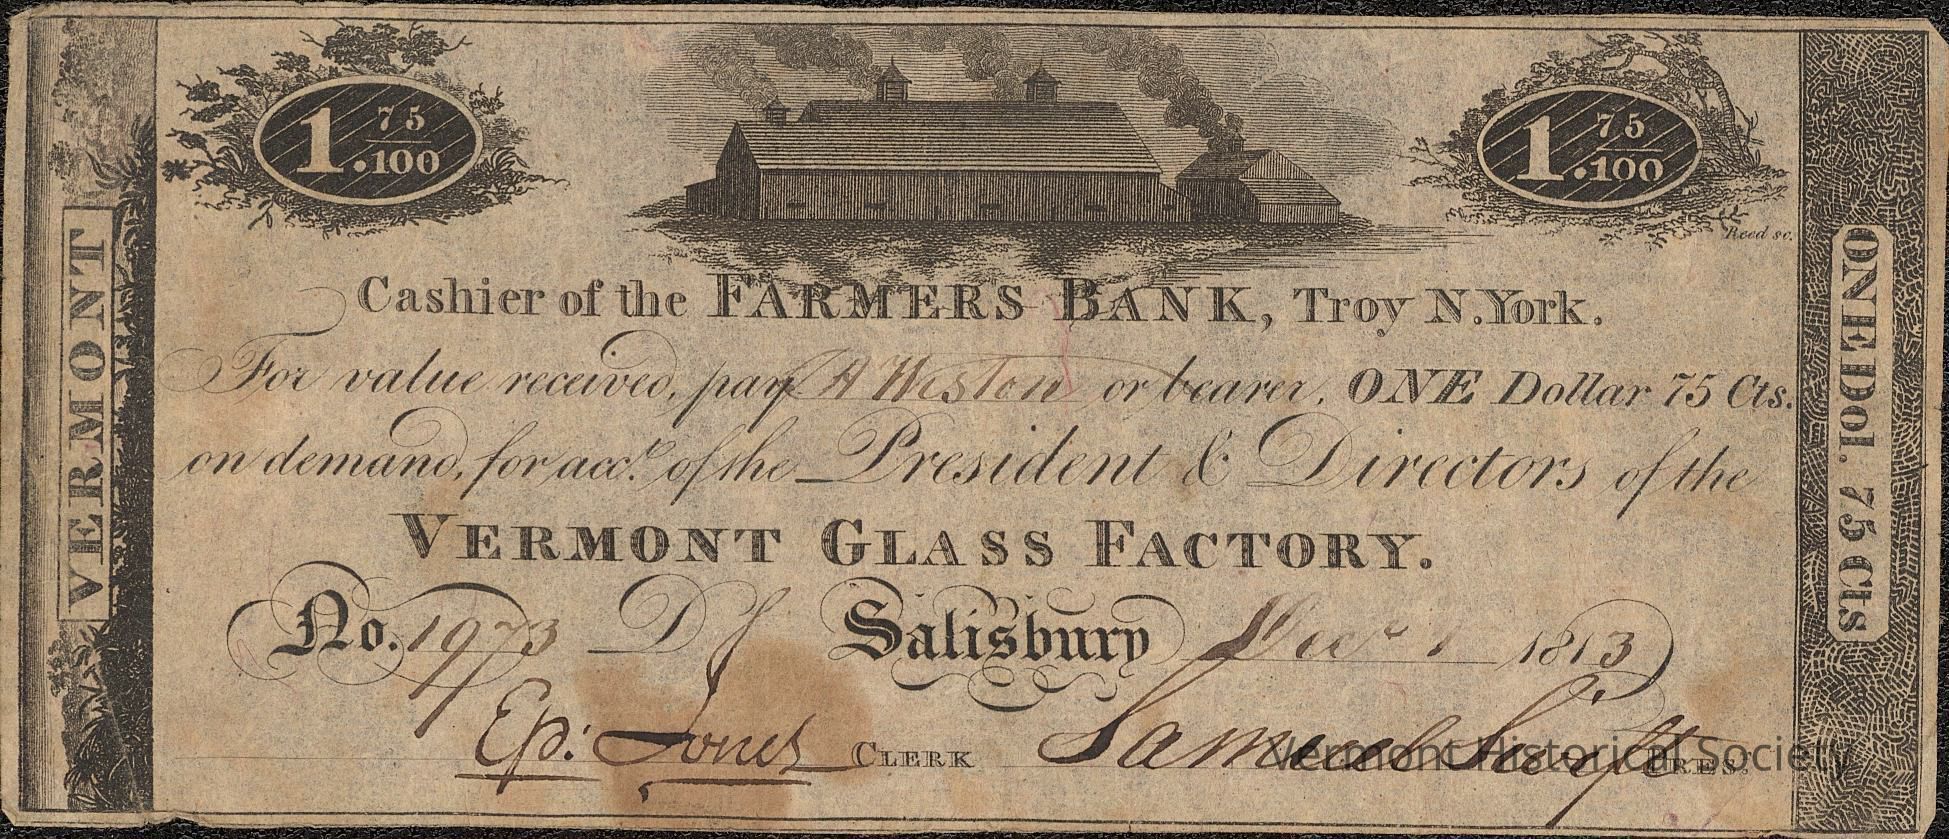 1. 75/100
1. 75/100
Reed sc.
VERMONT
ONE Dol. 75 Cts
Cashier of the FARMERS BANK, Troy N. York.
For value received, pay A Weston or bearer, ONE Dollar 75 Cts.
on demand, for acct. of the President & Directors of the
VERMONT GLASS FACTORY.
No. 1973 D Salisbury Decr 1 1813
Ep: Jones CLERK Samuel Swift PRES.
Vermont Historical Society